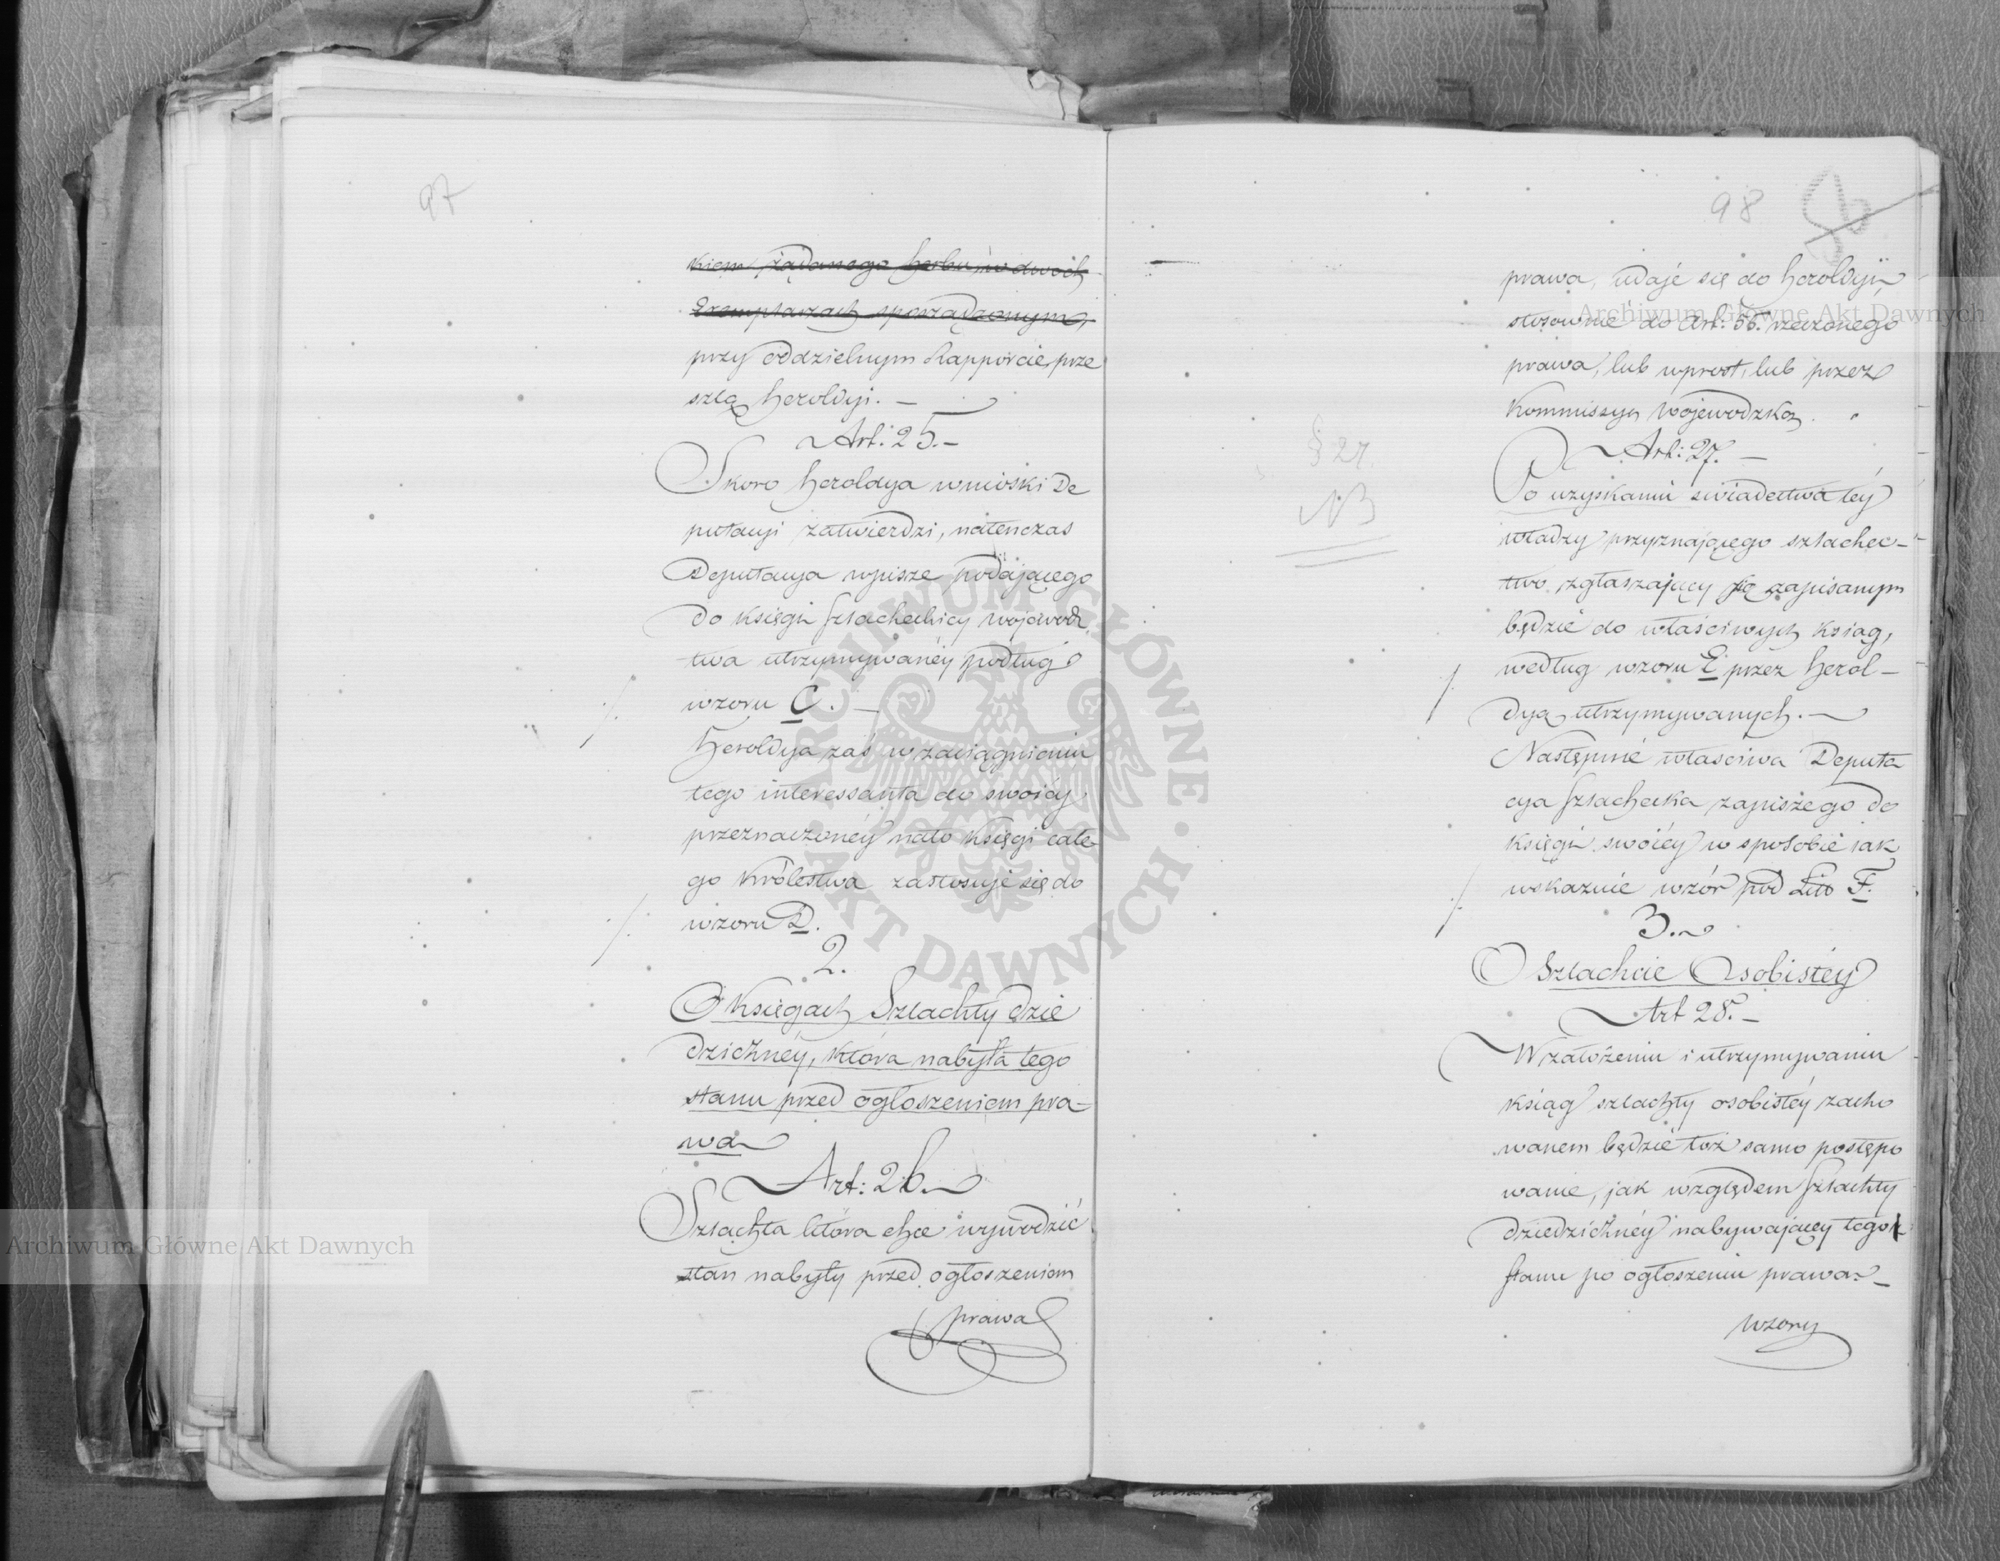 97
kiem żądanego herbu w dwóch
Exemplarzach sporządzonym,
przy oddzielnym Rapporcie prze
szlą Heroldyi. —
Art: 25. —
Skoro Heroldya wnioski De
putacyi zatwierdzi, natenczas
Deputacya wpisze podającego
do księgi szlacheckiey wojewódz
twa utrzymywanéy podług
wzoru C. —
Heroldya zaś w zaciągnieniu
tego interessanta do swoiéy
przeznaczonéy na to księgi całe
go Królestwa zastosuje się do
wzoru D.
2.
O Księgach Szlachty dzie
dzicznéy, która nabyła tego
stanu przed ogłoszeniem pra-
wa
Art: 26.
Szlachta która chce wywodzić
stan nabyty przed ogłoszeniem
prawa
98
prawa, udaje się do Heroldyi,
stosownie do Art: 56. rzeczonego
prawa, lub wprost, lub przez
Kommissyą Wojewódzką.
§ 27
NB
Art: 27. —
Po uzyskaniu świadectwa téy
władzy przyznającego szlachec-
two, zgłaszający się zapisanym
będzie do właściwych ksiąg,
według wzoru E przez Herol-
dyą utrzymywanych. —
Następnie właściwa Deputa
cya szlachecka zapisze go do
księgi swoiéy w sposobie jak
wskazuie wzór pod Litt F.
3.
O Szlachcie Osobistéy
Art 28. —
W założeniu i utrzymywaniu
ksiąg szlachty osobistéy zacho
wanem będzie toż samo postępo
wanie, jak względem szlachty
dziedzicznéy nabywającéy tego
stanu po ogłoszeniu prawa. —
Wzory
Archiwum Główne Akt Dawnych
Archiwum Główne Akt Dawnych
ARCHIWUM GŁÓWNE · AKT DAWNYCH ·